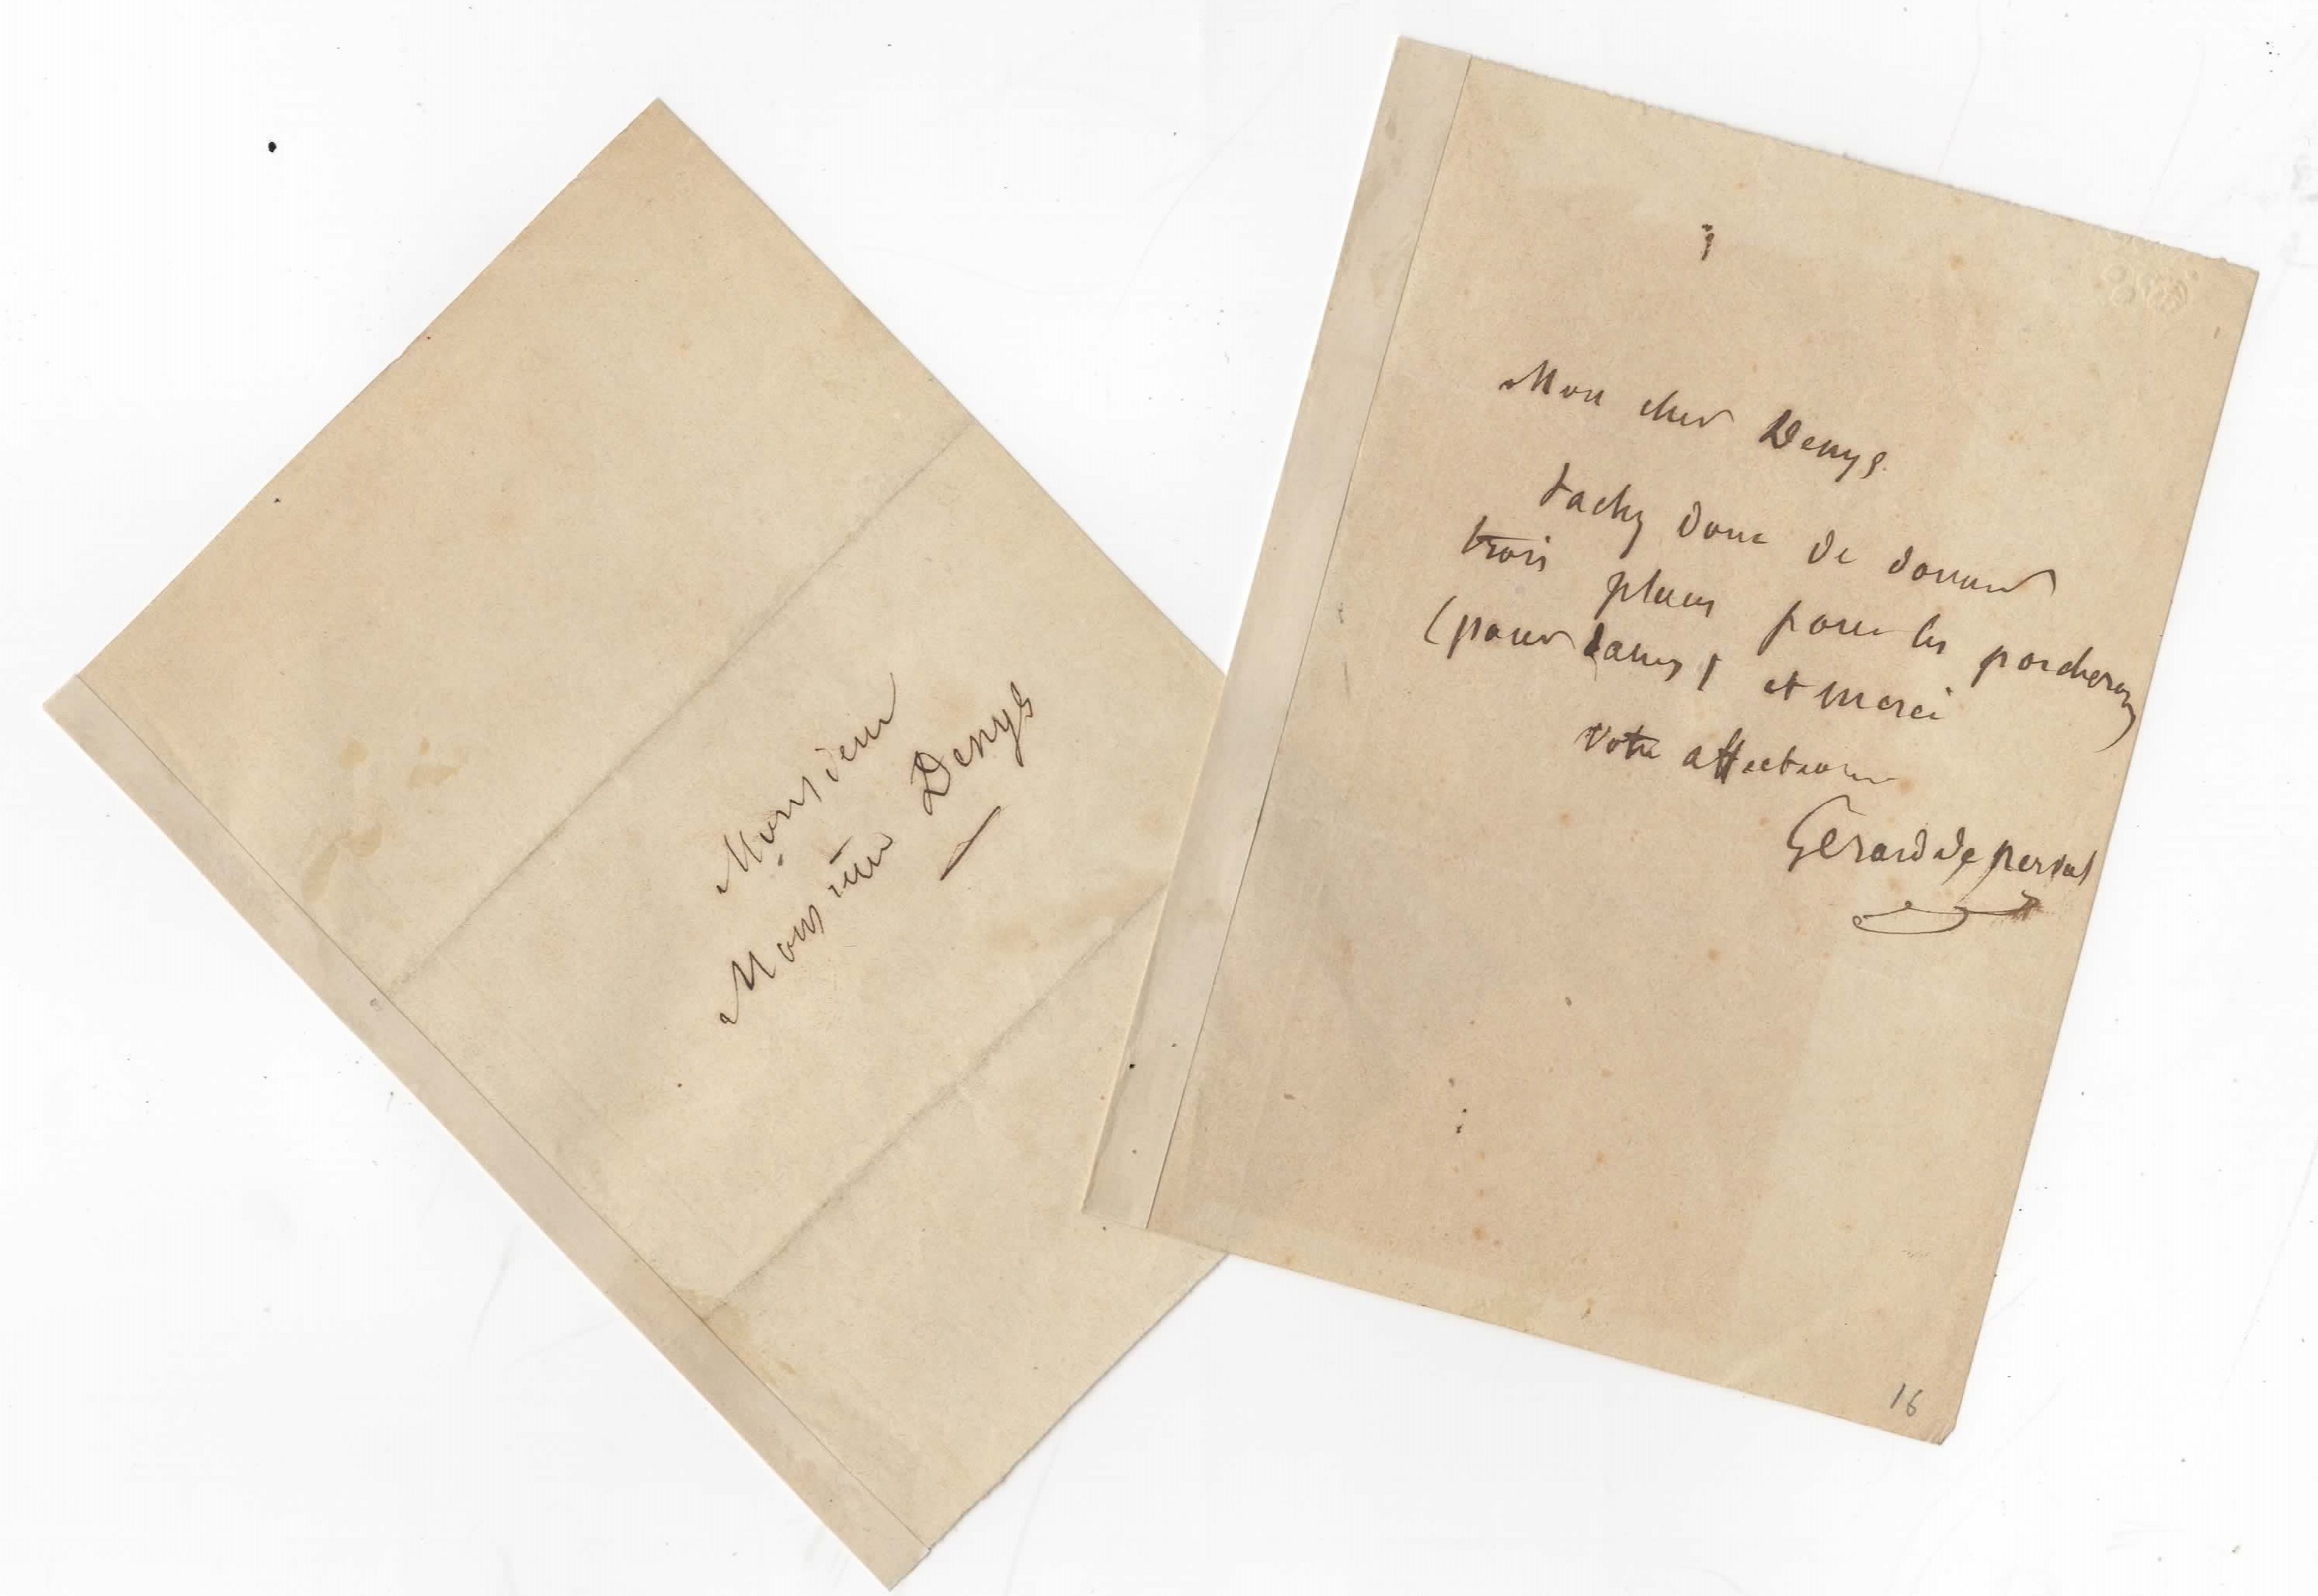 Monsieur
Monsieur Denys
Mon cher Denys
tachez donc de donner
trois places pour les porcherons
(pour dames) et merci
Votre affectionné
Gérard de Nerval
16